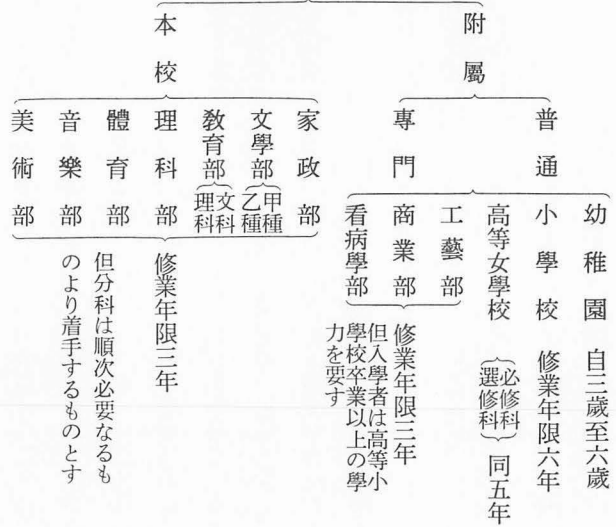 附屬
普通
幼稚園 自三歲至六歲
小學校 修業年限六年
高等女學校 必修科 選修科 同五年
專門
工藝部
商業部
看病學部
修業年限三年
但入學者は高等小
學校卒業以上の學
力を要す
本校
家政部
文學部 甲種 乙種
敎育部 文科 理科
理科部
體育部
音樂部
美術部
修業年限三年
但分科は順次必要なるも
のより着手するものとす